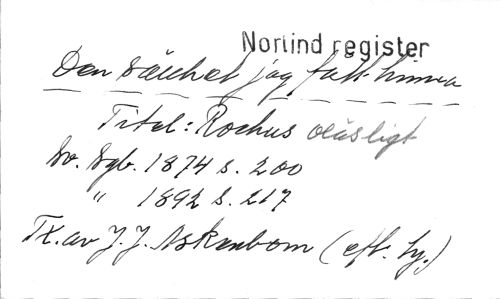 Norlind register
Den jag fått
Titel: Rochus oläsligt
Sv. Sgb. 1874 s. 200
" 1892 s. 217
Tx. av J. J. Askenbom (eft. ty.)